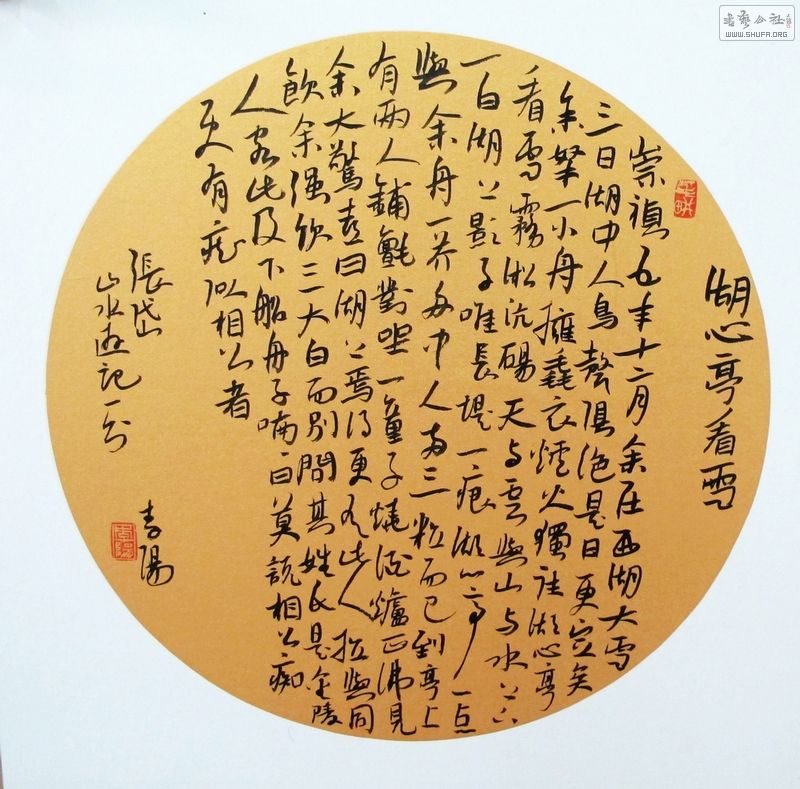 書藝公社
WWW.SHUFA.ORG
湖心亭看雪
崇禎五年十二月余住西湖大雪
三日湖中人鳥聲俱絕是日更定矣
余拏一小舟擁毳衣爐火獨往湖心亭
看雪霧凇沆碭天与雲與山与水上下
一白湖上影子唯長堤一痕湖心亭一点
與余舟一芥舟中人兩三粒而已到亭上
有兩人鋪氈對坐一童子燒酒爐正沸見
余大驚喜曰湖上焉得更有此人拉與同
飲余强飲三大白而別問其姓氏是金陵
人客此及下船舟子喃曰莫說相公痴
更有痴似相公者
張岱
山水遊記一
青陽